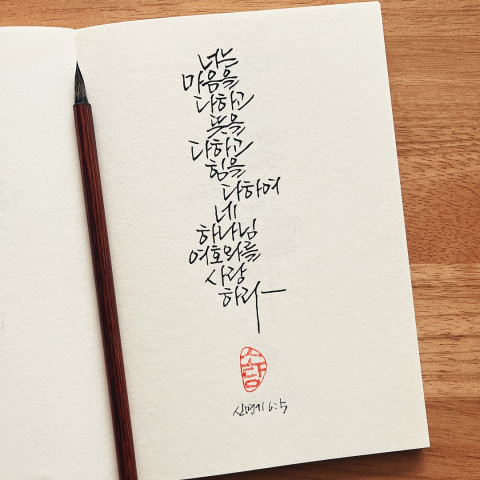 너는
마음을
다하고
뜻을
다하고
힘을
다하여
네
하나님
여호와를
사랑
하라
신명기 6:5